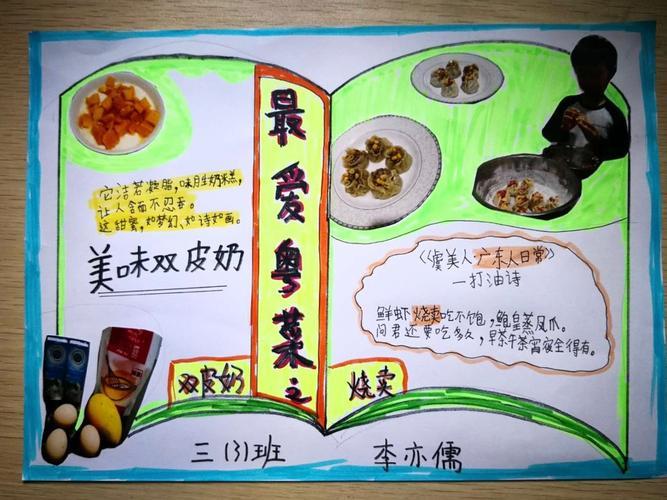 最爱粤菜之
它洁若凝脂,味胜奶米糕,
让人含而不忍吞。
这甜蜜,如梦幻、如诗如画。
美味双皮奶
双皮奶
《虞美人·广东人日常》
—打油诗
鲜虾烧卖吃不饱,鲍皇蒸凤爪。
问君还要吃多久,早茶午茶宵夜全得有。
烧卖
三(3)班
李亦儒